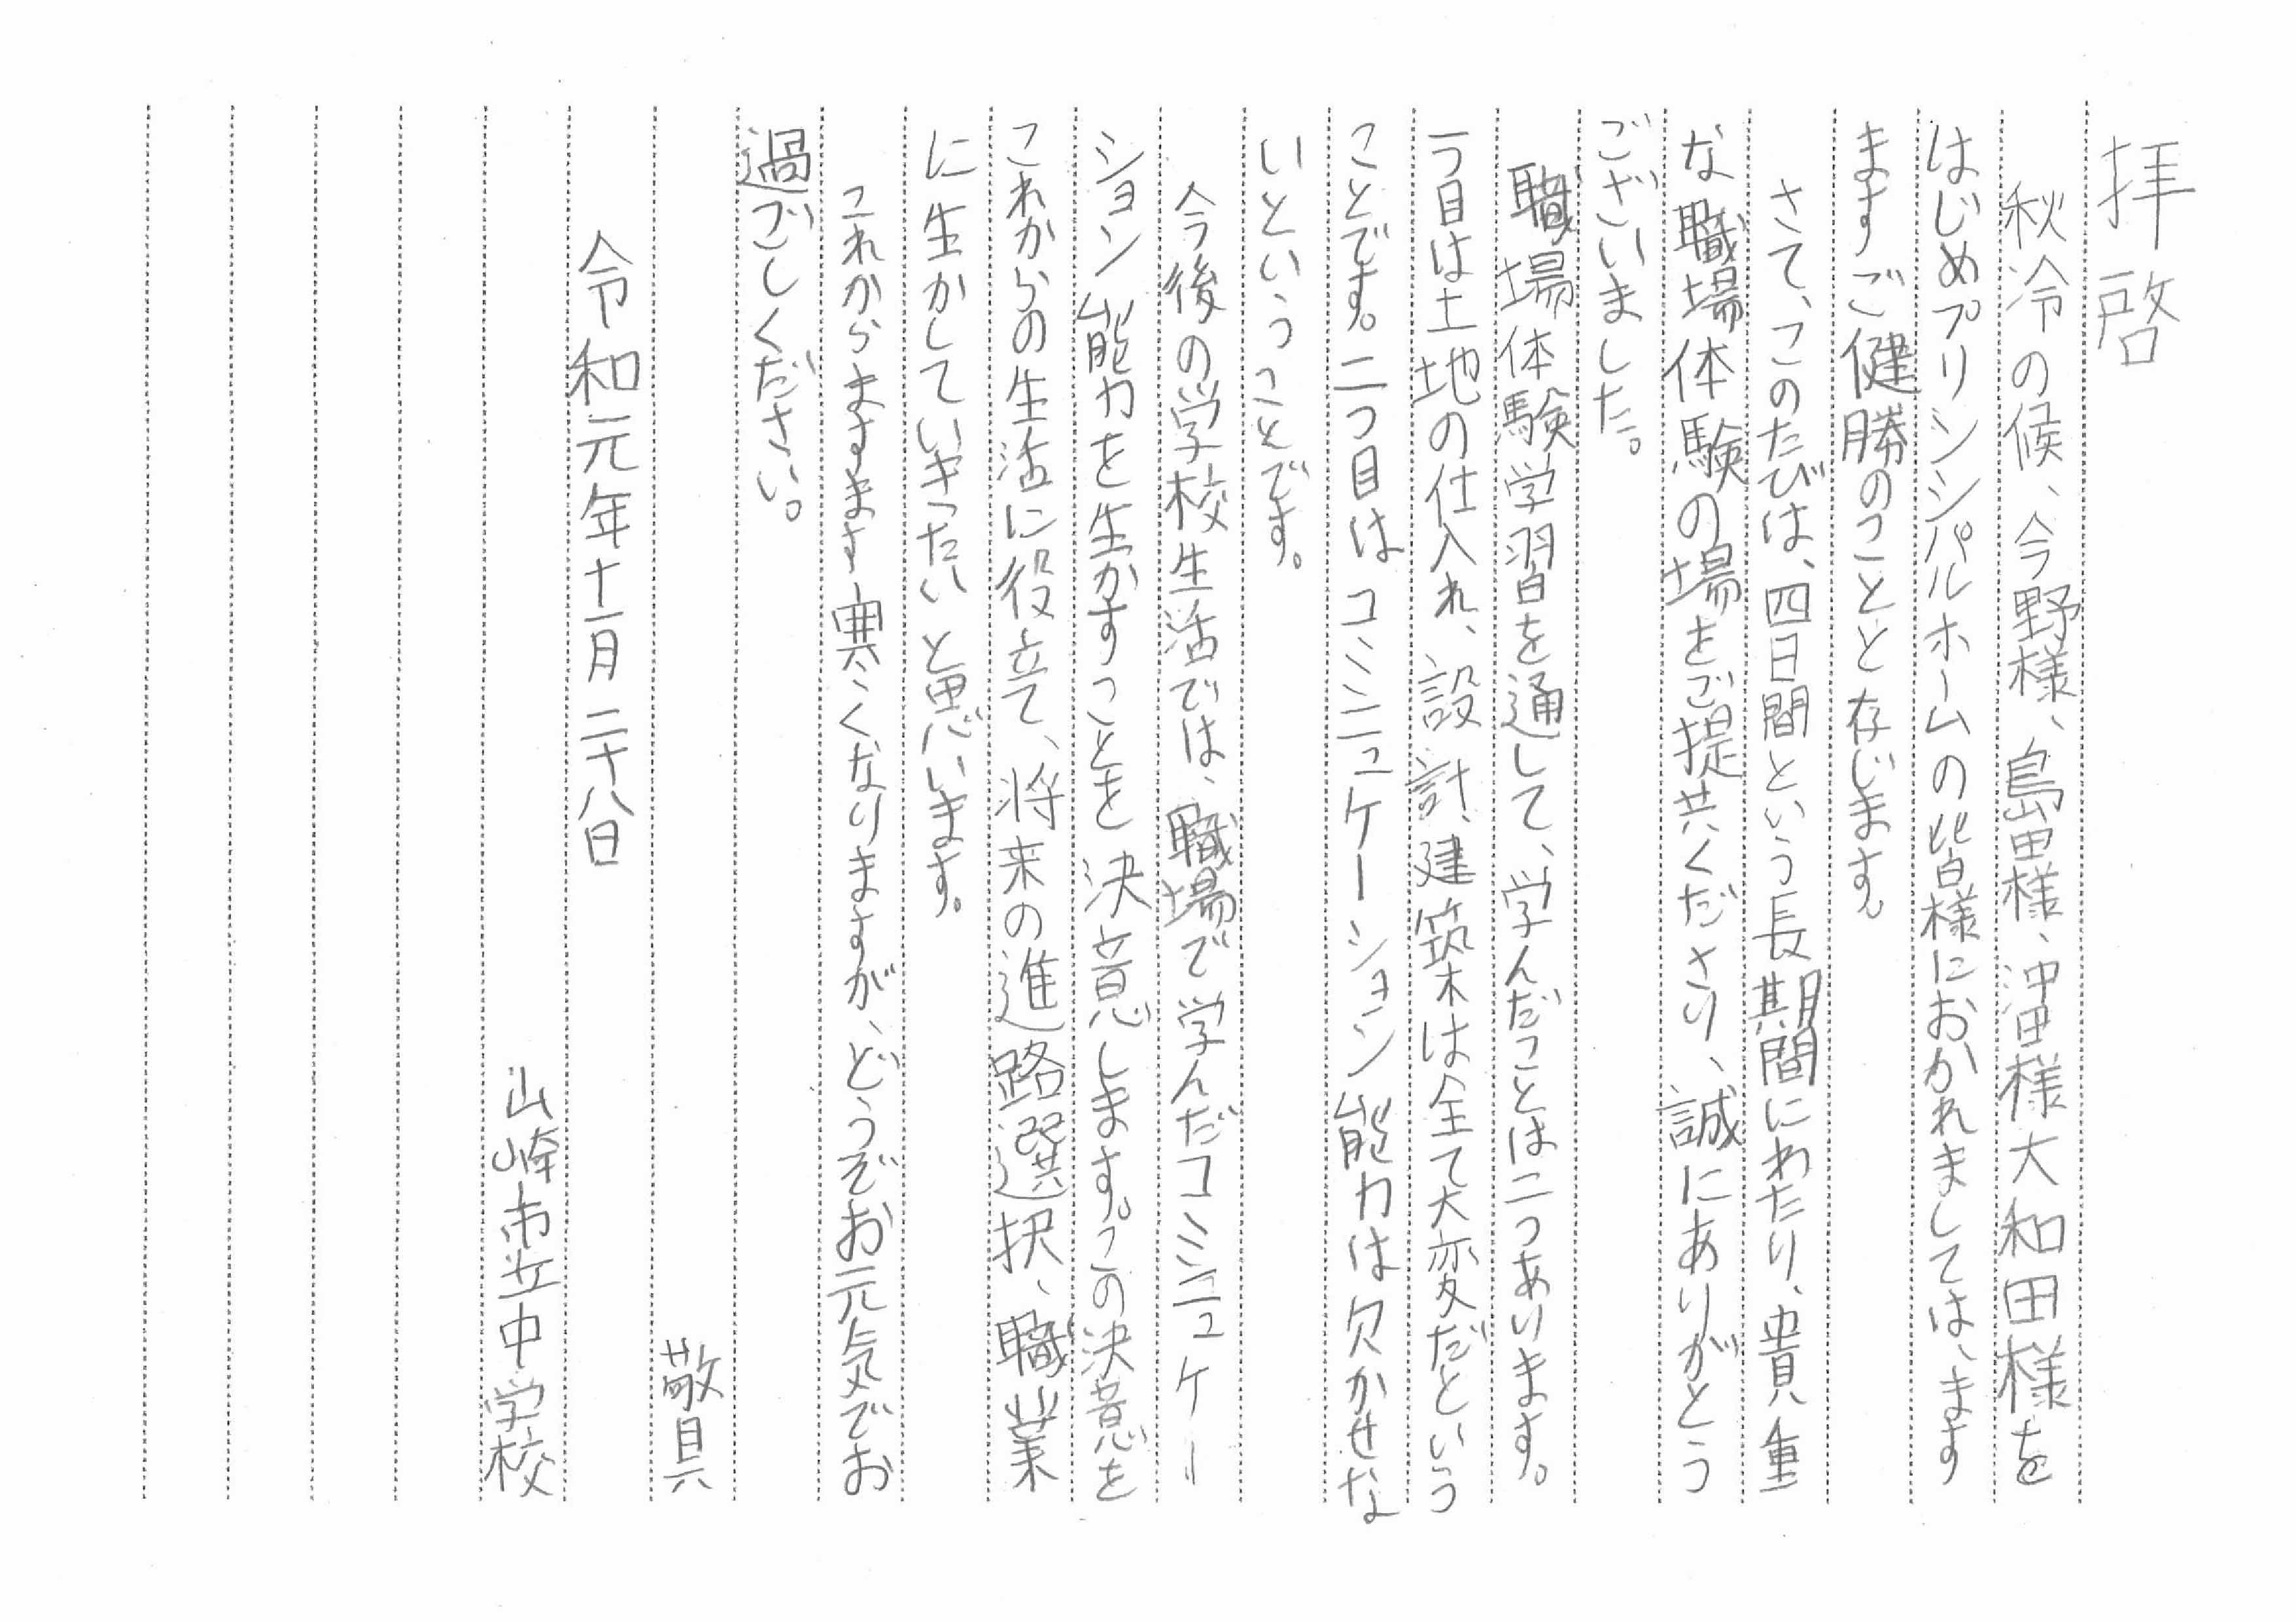 拝啓
秋冷の候、今野様、島田様、沖田様大和田様を
はじめプリンシパルホームの皆様におかれましては、ます
ますご健勝のことと存じます。
さて、このたびは、四日間という長期間にわたり、貴重
な職場体験の場をご提共くださり、誠にありがとう
ございました。
職場体験学習を通して、学んだことは二つあります。
一つ目は土地の仕入れ、設計、建築は全て大変だという
ことです。二つ目はコミニュケーション能力は欠かせな
いということです。
今後の学校生活では、職場で学んだコミニュケー
ション能力を生かすことを決意します。この決意を
これからの生活に役立て、将来の進路選択、職業
に生かしていきたいと思います。
これからますます寒くなりますが、どうぞお元気でお
過ごしください。
敬具
令和元年十一月二十八日
山崎市立中学校